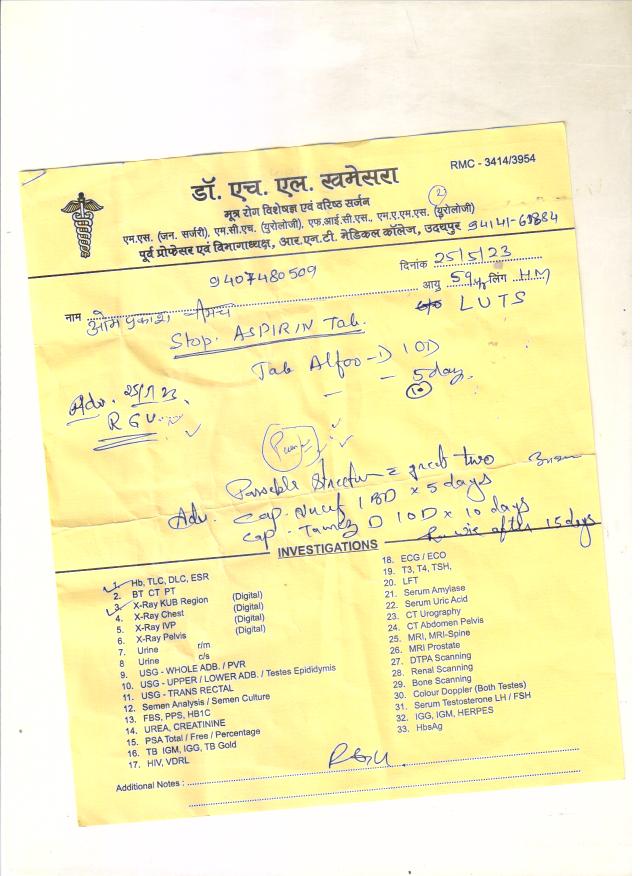 RMC - 3414/3954
डॉ. एच. एल. खमेसरा
मूत्र रोग विशेषज्ञ एवं वरिष्ठ सर्जन
एम.एस. (जन. सर्जरी), एम.सी.एच. (यूरोलोजी), एफ.आई.सी.एस., एम.ए.एम.एस. (यूरोलोजी)
पूर्व प्रोफेसर एवं विभागाध्यक्ष, आर.एन.टी. मेडिकल कॉलेज, उदयपुर
दिनांक 25/5/23
9407480509
आयु 59 लिंग HM
नाम ओम प्रकाश
LUTS
Stop. ASPIRIN Tab.
Tab Alfoo-D 1OD
5 day
10
Adv.
RGU
Passable Stricture
Adv. Cap. 1BD x 5 days
Cap - D 1OD x 10 days
after 15 days
INVESTIGATIONS
1. Hb, TLC, DLC, ESR
2. BT CT PT
3. X-Ray KUB Region (Digital)
4. X-Ray Chest (Digital)
5. X-Ray IVP (Digital)
6. X-Ray Pelvis (Digital)
7. Urine r/m
8 Urine c/s
9. USG - WHOLE ADB. / PVR
10. USG - UPPER / LOWER ADB. / Testes Epididymis
11. USG - TRANS RECTAL
12. Semen Analysis / Semen Culture
13. FBS, PPS, HB1C
14. UREA, CREATININE
15. PSA Total / Free / Percentage
16. TB IGM, IGG, TB Gold
17. HIV, VDRL
18. ECG / ECO
19. T3, T4, TSH,
20. LFT
21. Serum Amylase
22. Serum Uric Acid
23. CT Urography
24. CT Abdomen Pelvis
25. MRI, MRI-Spine
26. MRI Prostate
27. DTPA Scanning
28. Renal Scanning
29. Bone Scanning
30. Colour Doppler (Both Testes)
31. Serum Testosterone LH / FSH
32. IGG, IGM, HERPES
33. HbsAg
RGU
Additional Notes :